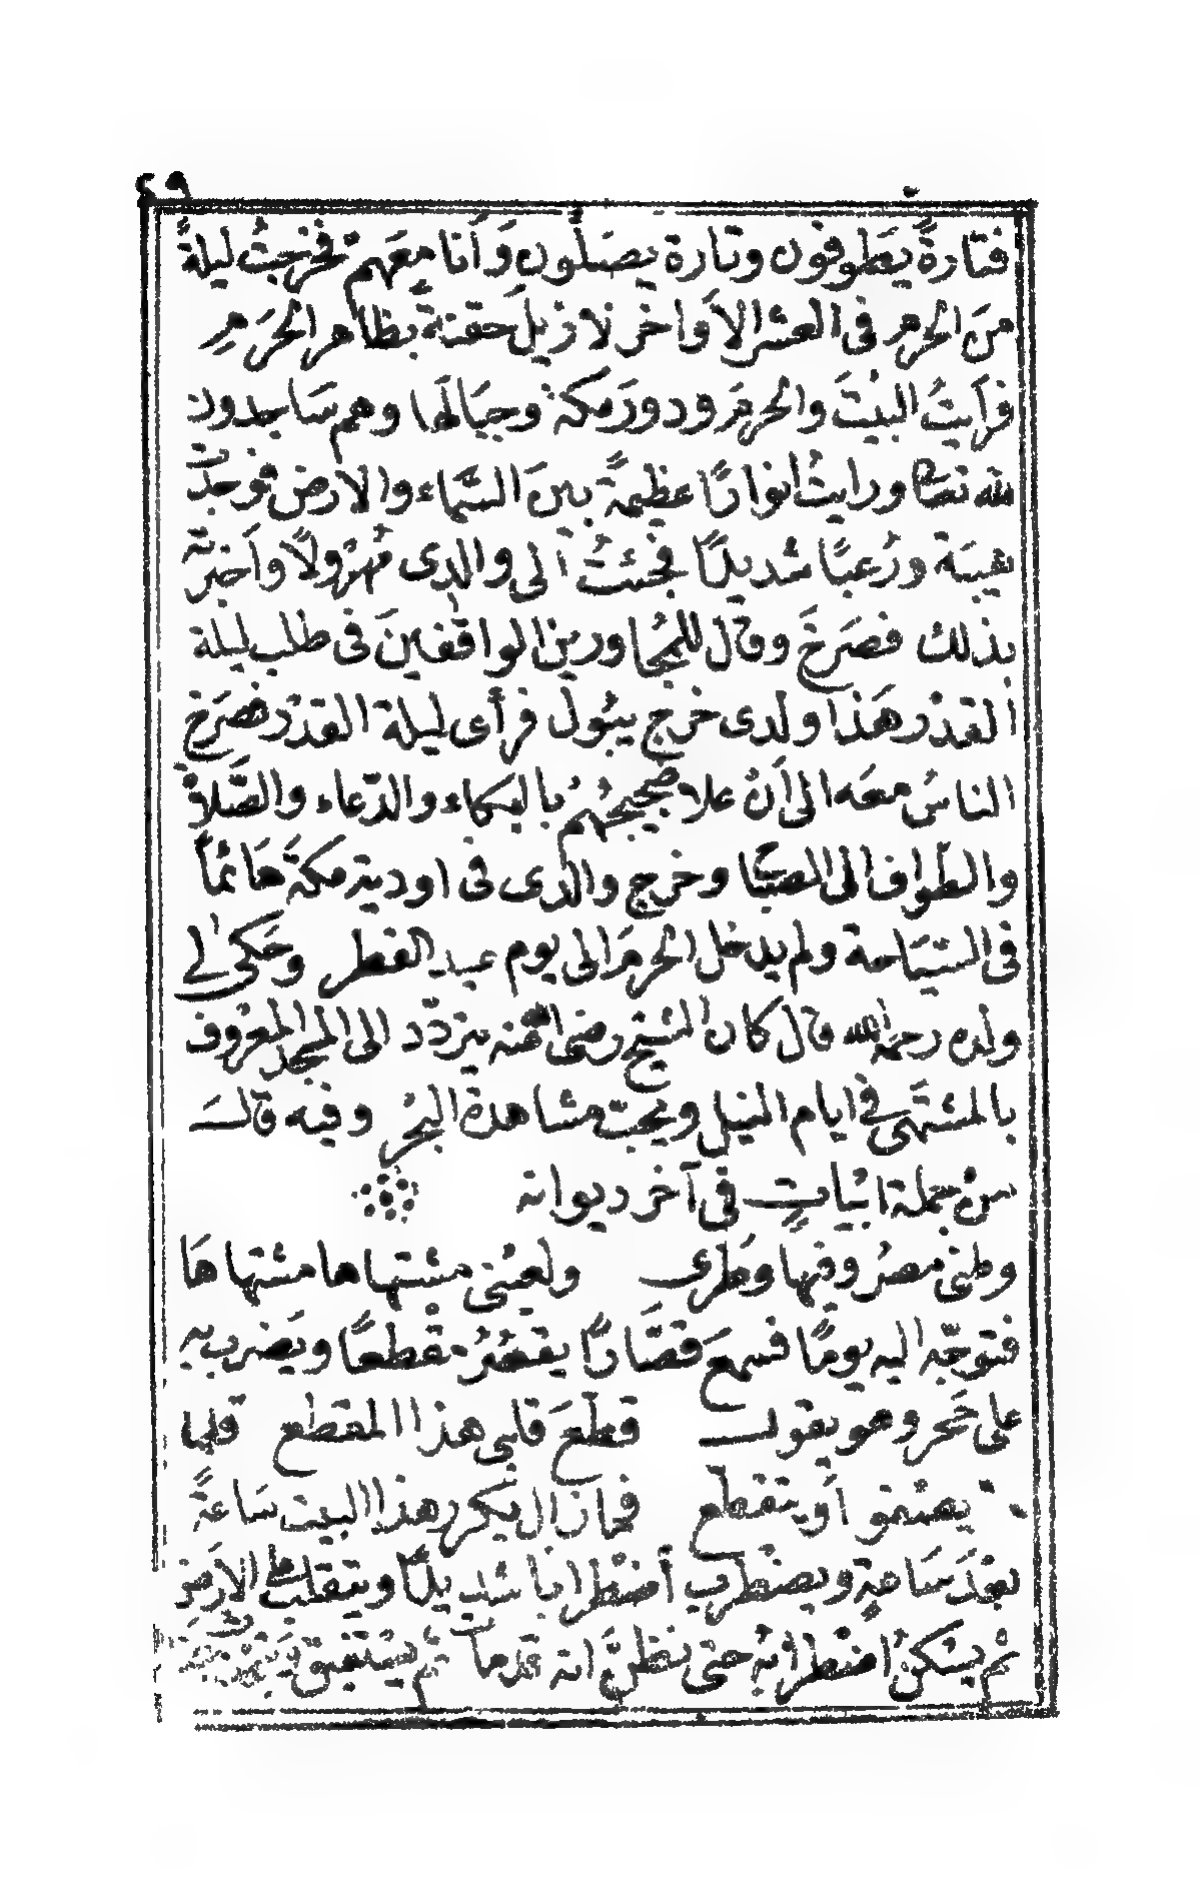 ٤٩
فتارةً يَطوفون وتارة يصَلُّون وَأنا معَهم فخرَجتُ ليلةً
منَ الحرم فى العشر الأواخر لازيل حقنةً بظاهر الحرَم
فرَأيتُ البيْتَ والحرمَ ودورَ مكة وجبَالهَا وهم سَاجدون
لله تعالى ورايتُ انوارًا عظيمةً بينَ السَّماء والارض فوجدت
هيبَة ورُعبًا شديدًا فجئتُ الى والدى مُهرْولاً وأخبرته
بذلك فصَرخَ وقال للمجُاورين الواقفينَ فى طلب ليلة
القدْر هَذا ولدى خرج يبُول فرأى ليلة القدْر فصَرخ
الناسُ معَه الى أنْ علا ضجيجهُم بالبكاء والدّعاء والصَّلاة
والطَّواف الى الصبَّاح وخرج والدى فى اودية مكةَ هَائمًا
فى السّيَاحة ولم يدخل الحرمَ الى يوم عيد الفطر وحَكى لى
ولده رحمه الله قال كان الشيخ رضى الله عنه يتردّد الى المسجد المعرُوف
بالمشتَهى فى ايام النيل ويحبّ مشاهدة البحْر وفيه قالَ
منْ جملة ابْيات فى آخر ديوانه
وطنى مصرُ وفيها وَطَرى ولعيْنى مشتهاها مشتهاهَا
فتوجّه اليه يومًا فسمعَ قصَّارًا يقصُرُ مقطعًا ويَضرب به
على حَجر وهو يقول قطّعَ قلبى هذا المقطع قلبا
يصفو أو يتقطع فما زال يكرر هذا البيت سَاعةً
بعْدَ سَاعةٍ ويضطرب أضطرابا شديدًا ويتقلب على الأرض
ثم يسْكنُ اضطرابُه حتى نظنَّ انه قد مات ثم يستفيق